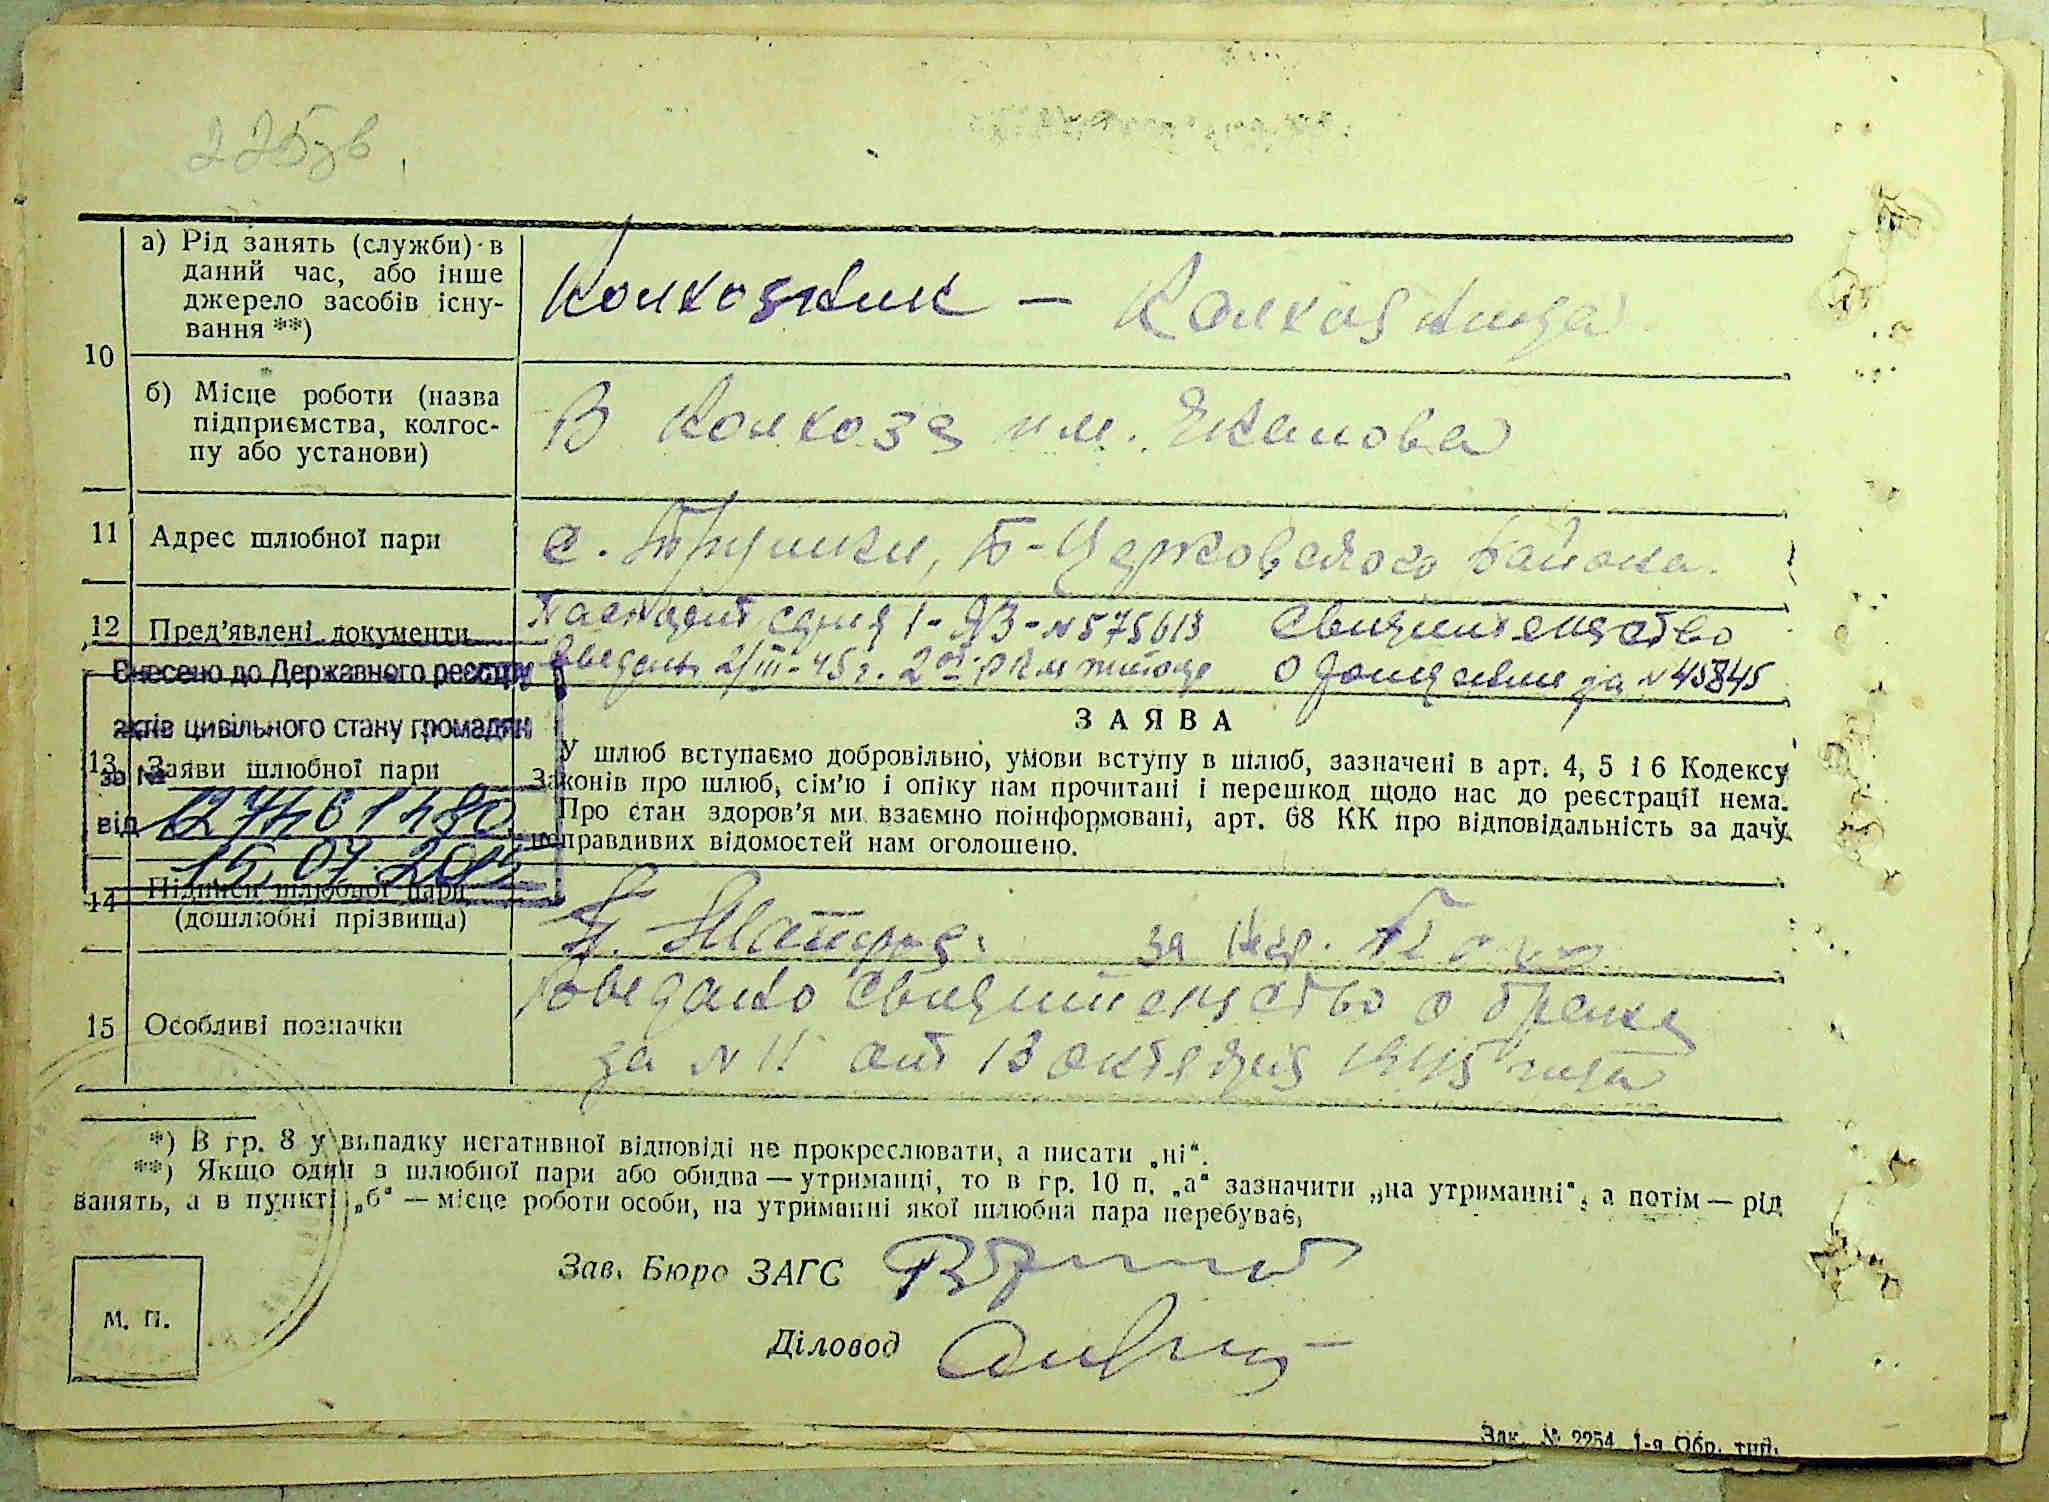 а) Рід занять (служби) в
даний час, або інше
джерело засобів існу-
вання **)
Колхозник — Колхозница
10
б) Місце роботи (назва
підприємства, колгос-
пу або установи)
В Колхозе им.
11 Адрес шлюбної пари
с. Трушки, Б-Церковского Района.
12 Пред'явлені документи
Паспорт серия 1-ЯЗ-№575613 Свидительство
2/III-45 г. 2ой о рождении за №45845
Внесено до Державного реєстру
актів цивільного стану громадян
за №
від
15.07.
ЗАЯВА
13 Заяви шлюбної пари
У шлюб вступаємо добровільно, умови вступу в шлюб, зазначені в арт. 4, 5 і 6 Кодексу
Законів про шлюб, сім'ю і опіку нам прочитані і перешкод щодо нас до реєстрації нема.
Про стан здоров'я ми взаємно поінформовані, арт. 68 КК про відповідальність за дачу
неправдивих відомостей нам оголошено.
14 Підписи шлюбної пари
(дошлюбні прізвища)
за
15 Особливі позначки
свидительство о браке
за №11 от 13 октября 1945 года
*) В гр. 8 у випадку негативної відповіді не прокреслювати, а писати „ні“.
**) Якщо один з шлюбної пари або обидва — утриманці, то в гр. 10 п. „а“ зазначити „на утриманні“, а потім — рід
занять, а в пункті „б“ — місце роботи особи, на утриманні якої шлюбна пара перебуває,
Зав. Бюро ЗАГС
М. П.
Діловод
Зак. № 2254 1-а Обр. тип.